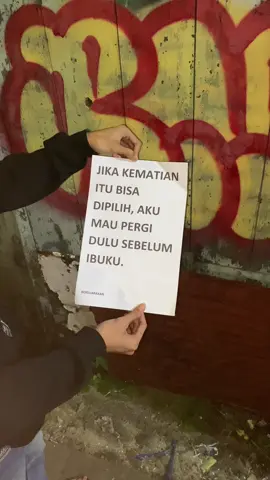 JIKA KEMATIAN
ITU BISA
DIPILIH, AKU
MAU PERGI
DULU SEBELUM
IBUKU.